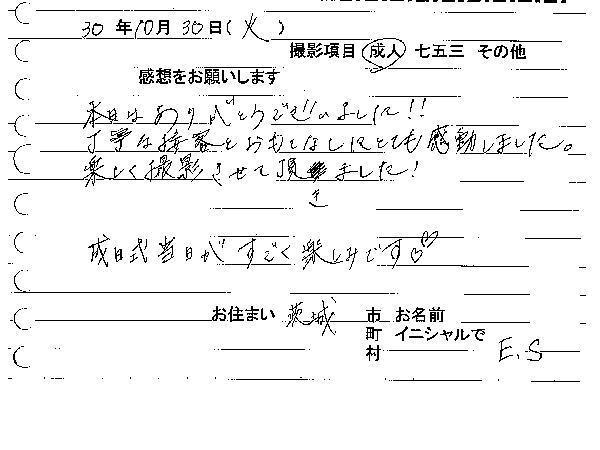 30年10月30日(火)
撮影項目 成人 七五三 その他
感想をお願いします
本日はありがとうございました!!
丁寧な接客とおもてなしにとても感動しました。
楽しく撮影させて頂きました!
成日式当日がすごく楽しみです♡♡
お住まい 茨城 市 お名前
町 イニシャルで
村 E.S